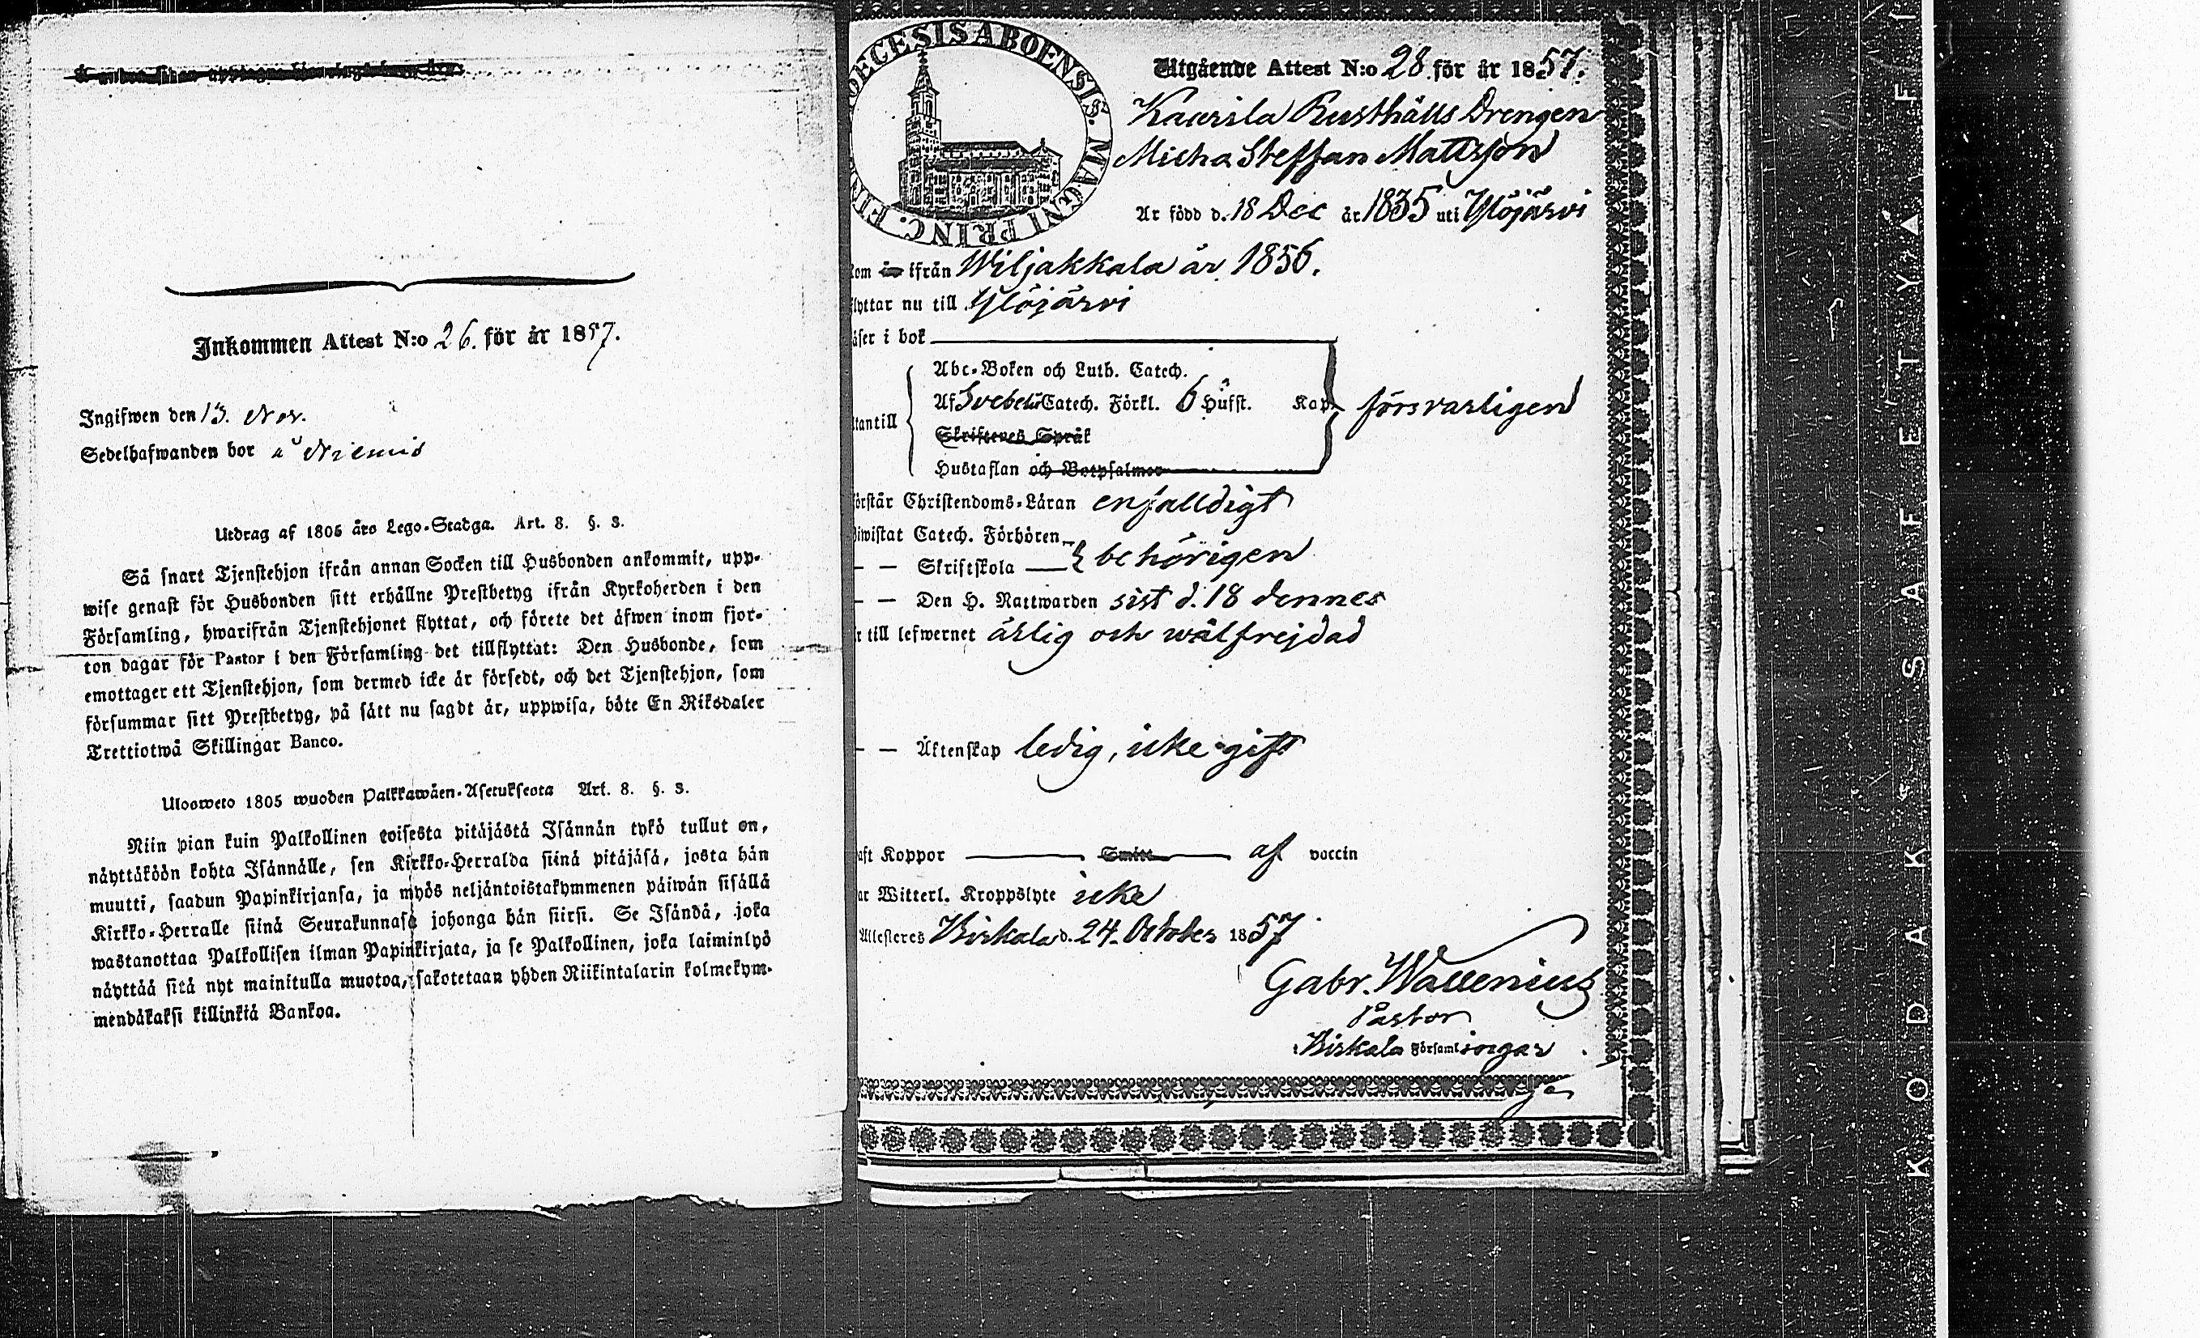 Inkommen Attest N:o 26. för år 1857.
Ingifwen den 13. Nov.
Sedelhafwanden bor å Niemis
Utdrag af 1805 års Lego-Stadga. Art. 8. §. 3.
Så snart Tjenstehjon ifrån annan Socken till Husbonden ankommit, upp-
wise genast för Husbonden sitt erhållne Prestbetyg ifrån Kyrkoherden i den
Församling, hwarifrån Tjenstehjonet flyttat, och förete det äfwen inom fjor-
ton dagar för Pastor i den Församling det tillflyttat: Den Husbonde, som
emottager ett Tjenstehjon, som dermed icke är försedt, och det Tjenstehjon, som
försummar sitt Prestbetyg, på sätt nu sagdt är, uppwisa, böte En Riksdaler
Trettiotwå Skillingar Banco.
Uloosweto 1805 wuoden Palkkawäen-Asetuksesta Art. 8. §. 3.
Niin pian kuin Palkollinen toisesta pitäjästä Isännän tykö tullut on,
näyttäköön kohta Isännälle, sen Kirkko-Herralda siinä pitäjäsä, josta hän
muutti, saadun Papinkirjansa, ja myös neljäntoistakymmenen päiwän sisällä
Kirkko-Herralle siinä Seurakunnasa johonga hän siirsi. Se Isändä, joka
wastanottaa Palkollisen ilman Papinkirjata, ja se Palkollinen, joka laiminlyö
näyttää sitä nyt mainitulla muotoa, sakotetaan yhden Riikintalarin kolmekym-
mendäkaksi killinkiä Bankoa.
DIOECESIS ABOENSIS. MAGNI PRINC. FIN
Utgående Attest N:o 28 för år 1857.
Kaurila Rusthålls Drengen
Micha Steffan Mattsson
Är född d. 18 Dec år 1835 uti Ylöjärvi
kom in ifrån Wiljakkala år 1856.
flyttar nu till Ylöjärvi
läser i bok
Abc-Boken och Luth. Catech.
Af Svebelii Catech. Förkl. 6 Hufst. Kap. försvarligen
utantill
Skriftenes Språk
Hustaflan och Botpsalmer
förstår Christendoms-Läran enfalldigt
Biwistat Catech. Förhören
— — Skriftskola — behörigen
— — Den H. Nattwarden sist d. 18 dennes
är till lefwernet ärlig och wälfrejdad
— — Äktenskap ledig, icke gift
haft Koppor — Smitt — af vaccin
har Witterl. Kroppslyte icke
Attesteres Birkala d. 24. October 1857
Gabr. Wallenius
Pastor
i Birkala Församlingar
KODAK SAFETY